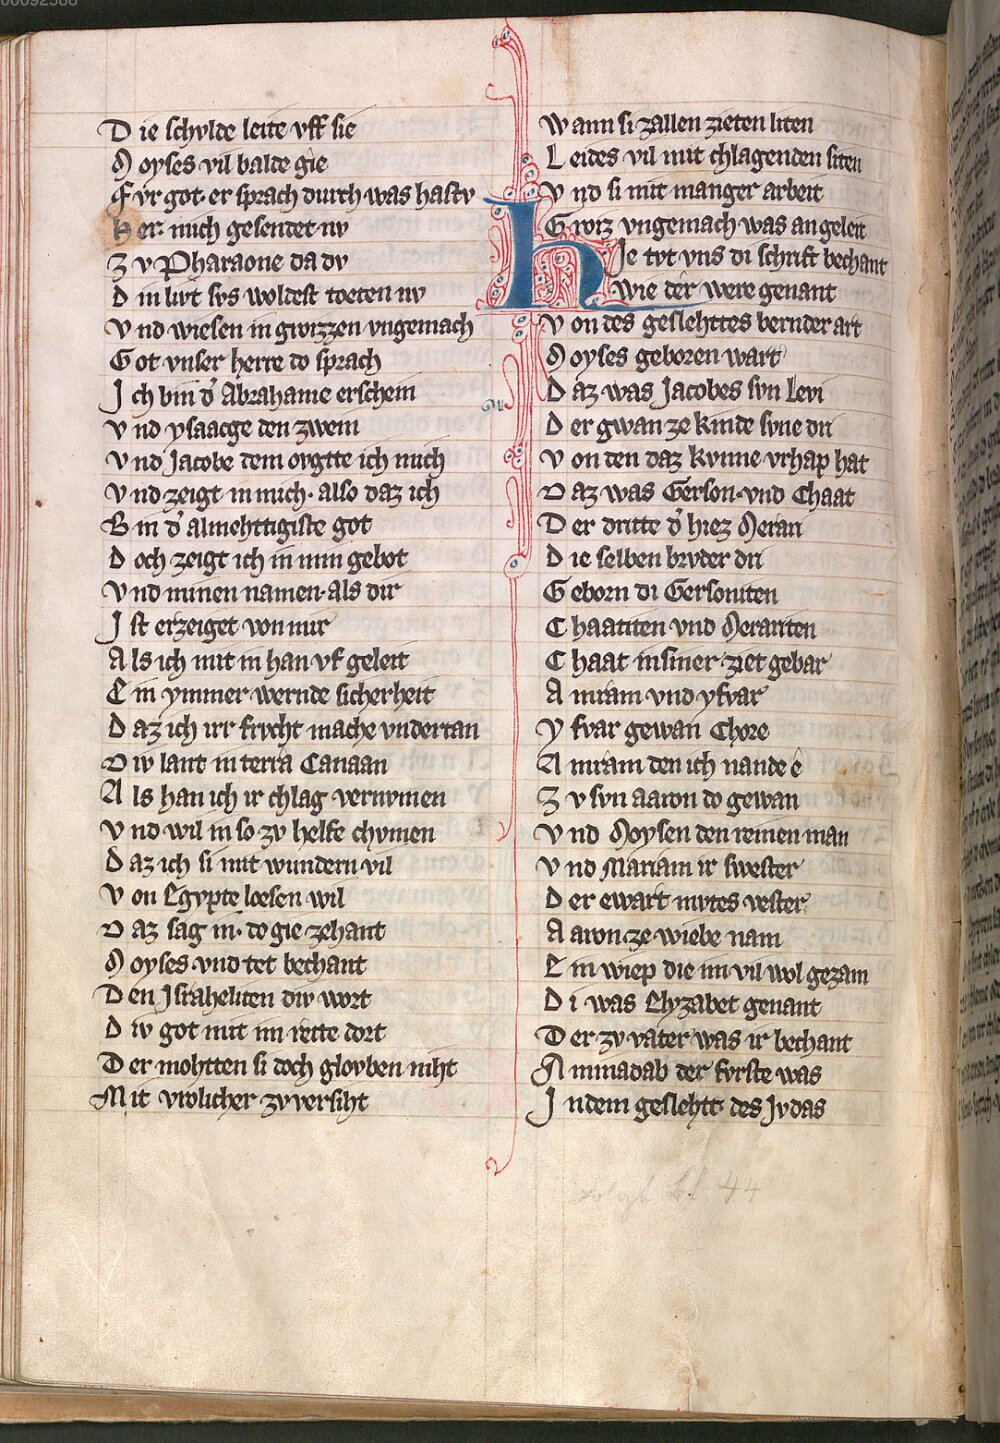 00092388
D ie schvlde leite vff sie
M oyses vil balde gie
F vr got· er sprach durch was hastv
H er· mich gesendet nv
Z v Pharaone da dv
D in livt svs woldest toeten nv
V nd wiesen in groizzen vngemach
G ot vnser herre do sprach
J ch bin d̾ Abrahame erschein
V nd ysaacge den zwein
V nd Jacobe dem ovgtte ich mich
V nd zeigt in mich· also daz ich
B in d̾ almehttigiste got
D och zeigt ich in min gebot
V nd minen namen· als dir
J st erzeiget von mir
A ls ich mit in han vf geleit
E in ymmer wernde sicherheit
D az ich irr frvcht mache vndertan
D iv lant in terra Canaan
A ls han ich ir chlag vernvmen
V nd wil in so zv helfe chvmen
D az ich si mit wundern vil
V on Egypte loesen wil
D az sag in· do gie zehant
M oyses vnd tet bechant
D en Jsraheliten div wort
D iv got mit im rette dort
D er mohtten si doch glovben niht
M it vrolicher zvversiht
W ann si zallen zieten liten
L eides vil mit chlagenden siten
V nd si mit manger arbeit
G roiz vngemach was an geleit
h Je tvt vns di schrift bechant
wie der were genant
V on des geslehttes bernder art
M oyses geboren wart
D az was Jacobes svn Levi
D er gwan ze kinde svne dri
V on den daz kvnne vrhap hat
D az was Gerson· vnd Chaat
D er dritte d̾ hiez Meran
D ie selben brvder dri
G eborn di Gersoniten
C haatiten vnd Merariten
C haat in siner ziet gebar
A mram vnd yfvar
Y fvar gewan Chore
A mram den ich nande e
Z v svn aaron do gewan
V nd Moysen den reinen man
V nd Mariam ir swester
D er ewart mvtes vester
A aron ze wiebe nam
E in wiep die im vil wol gezam
D i was Elyzabet genant
D er zv vater was ir bechant
A minadab der fvrste was
J n dem geslehtt· des Jvdas
folgt bl. 44